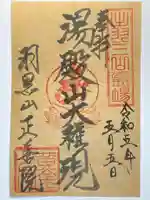 奉拝
湯殿山大権現
令和五年
五月五日
羽黒山正善院